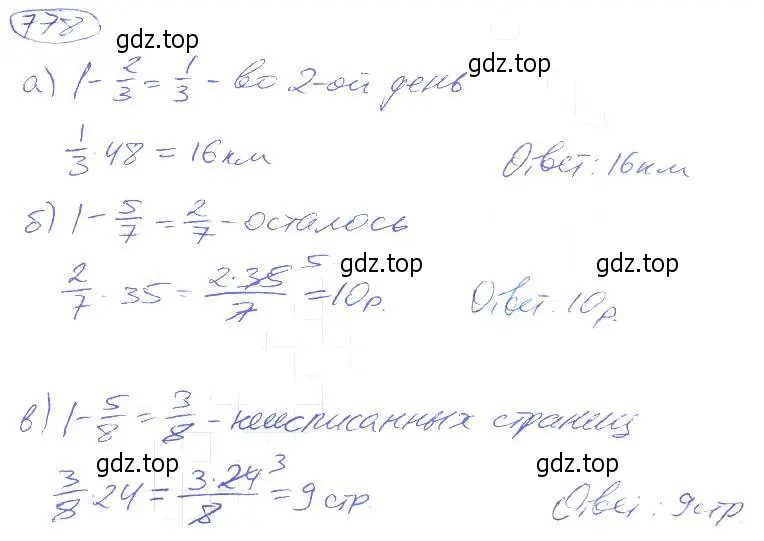 778
gdz.top
gdz.top
а) 1 - 2/3 = 1/3 - во 2-ой день
1/3 · 48 = 16 км Ответ: 16 км
б) 1 - 5/7 = 2/7 - осталось
gdz.top
gdz.top
2/7 · 35 = 2·35 5/7 = 10 р. Ответ: 10 р.
в) 1 - 5/8 = 3/8 - неисписанных страниц
gdz.top
gdz.top
3/8 · 24 = 3·24 3/8 = 9 стр. Ответ: 9 стр.